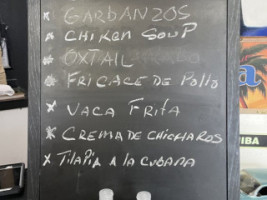 GARBANZOS
CHIKEN SOUP
OXTAIL
FRICACE DE POLLO
VACA FRITA
CREMA DE CHICHAROS
TILAPIA A LA CUBANA